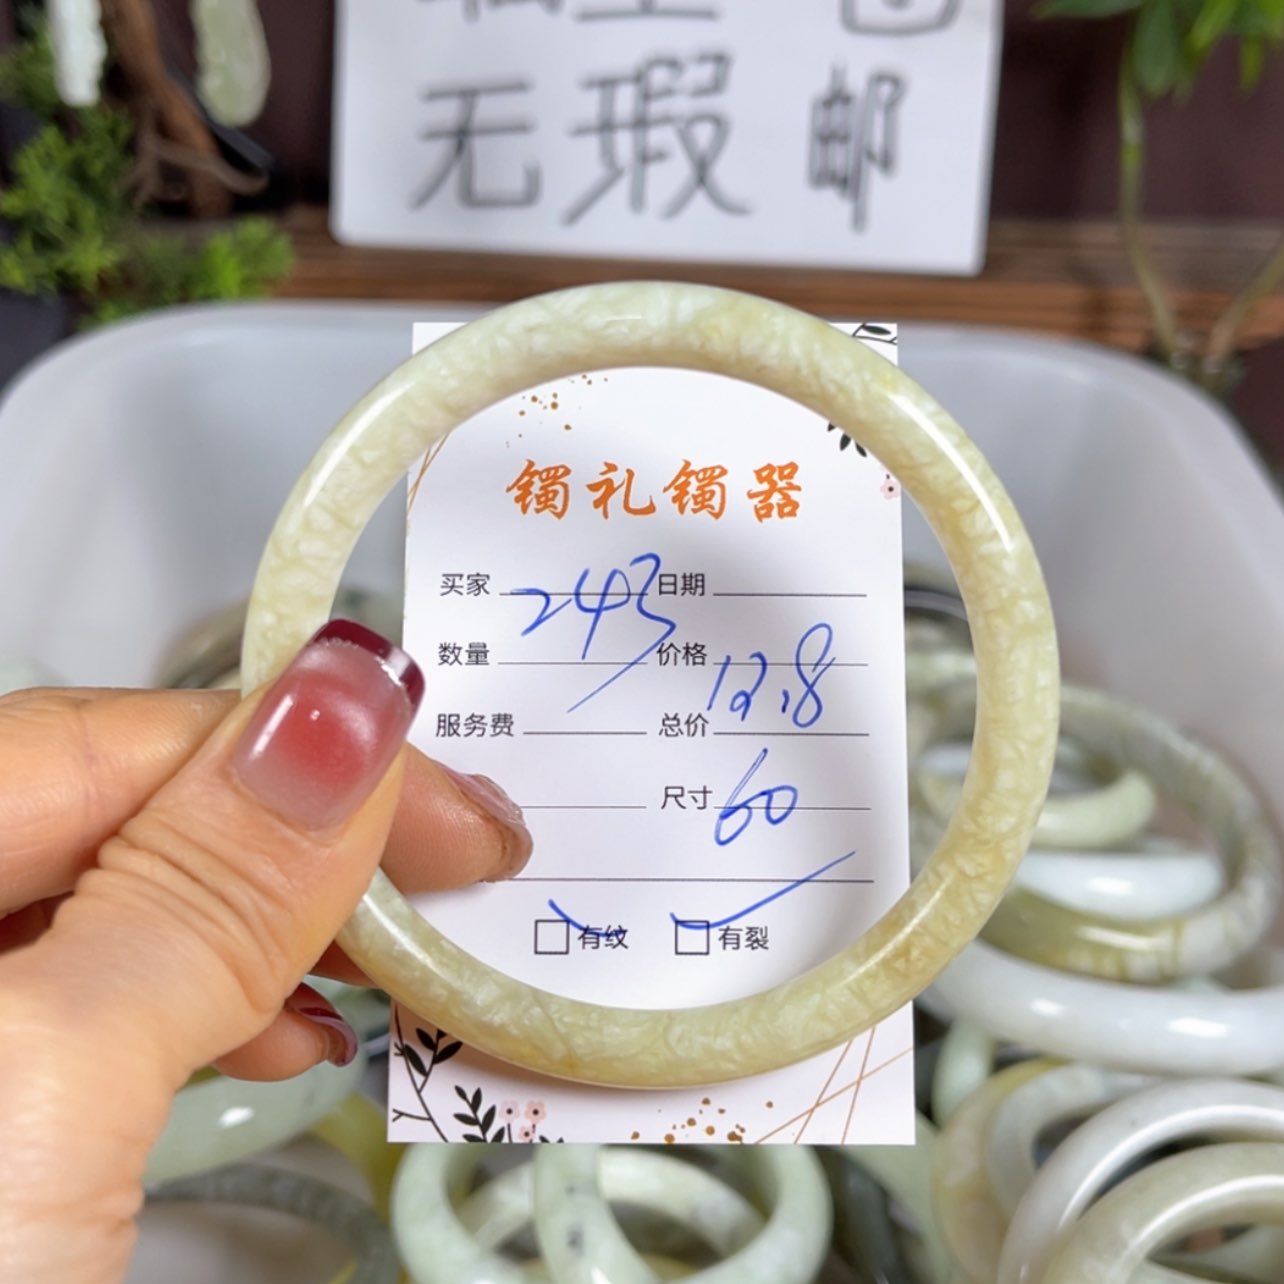 无瑕 邮
镯礼镯器
买家 243 日期
数量 价格 12.8
服务费 总价
尺寸 60
有纹 有裂